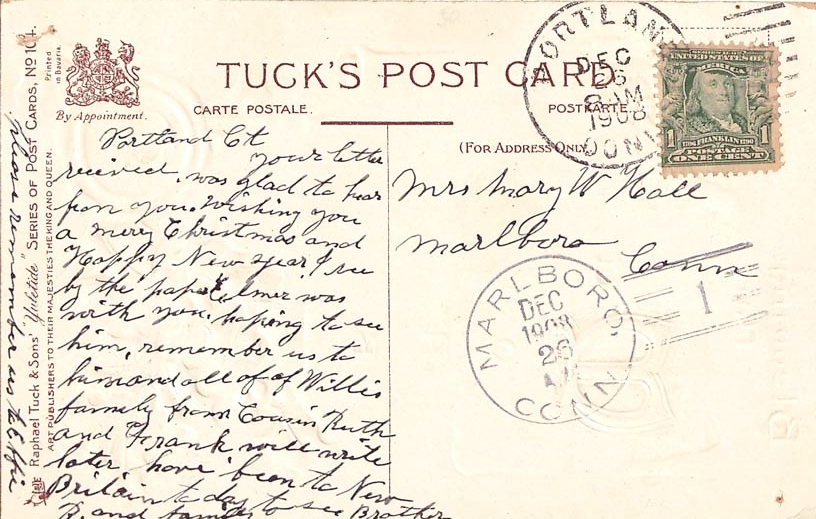 Printed
in Bavaria.
By Appointment.
TUCK'S POST CARD
CARTE POSTALE.
POSTKARTE
(FOR ADDRESS ONLY
Raphael Tuck & Sons' "Yuletide" SERIES OF POST CARDS, No 104.
ART PUBLISHERS TO THEIR MAJESTIES THE KING AND QUEEN.
please remember us to Effie
Portland Ct
your letter
received, was glad to hear
from you. Wishing you
a merry Christmas and
Happy New year, I see
by the paper Elmer was
with you, hoping to see
him, remember us to
him and all of of Willis
family from Cousin Ruth
and Frank will write
later, have been to New
Britain today to see Brother
R. and family
PORTLAND
DEC
26
8 AM
1908
CONN
UNITED STATES OF
AMERICA
1
1706 FRANKLIN 1790
1
POSTAGE
ONE CENT
Mrs Mary W Hall
Marlboro
Conn
MARLBORO,
DEC
1908
26
AM
CONN
1